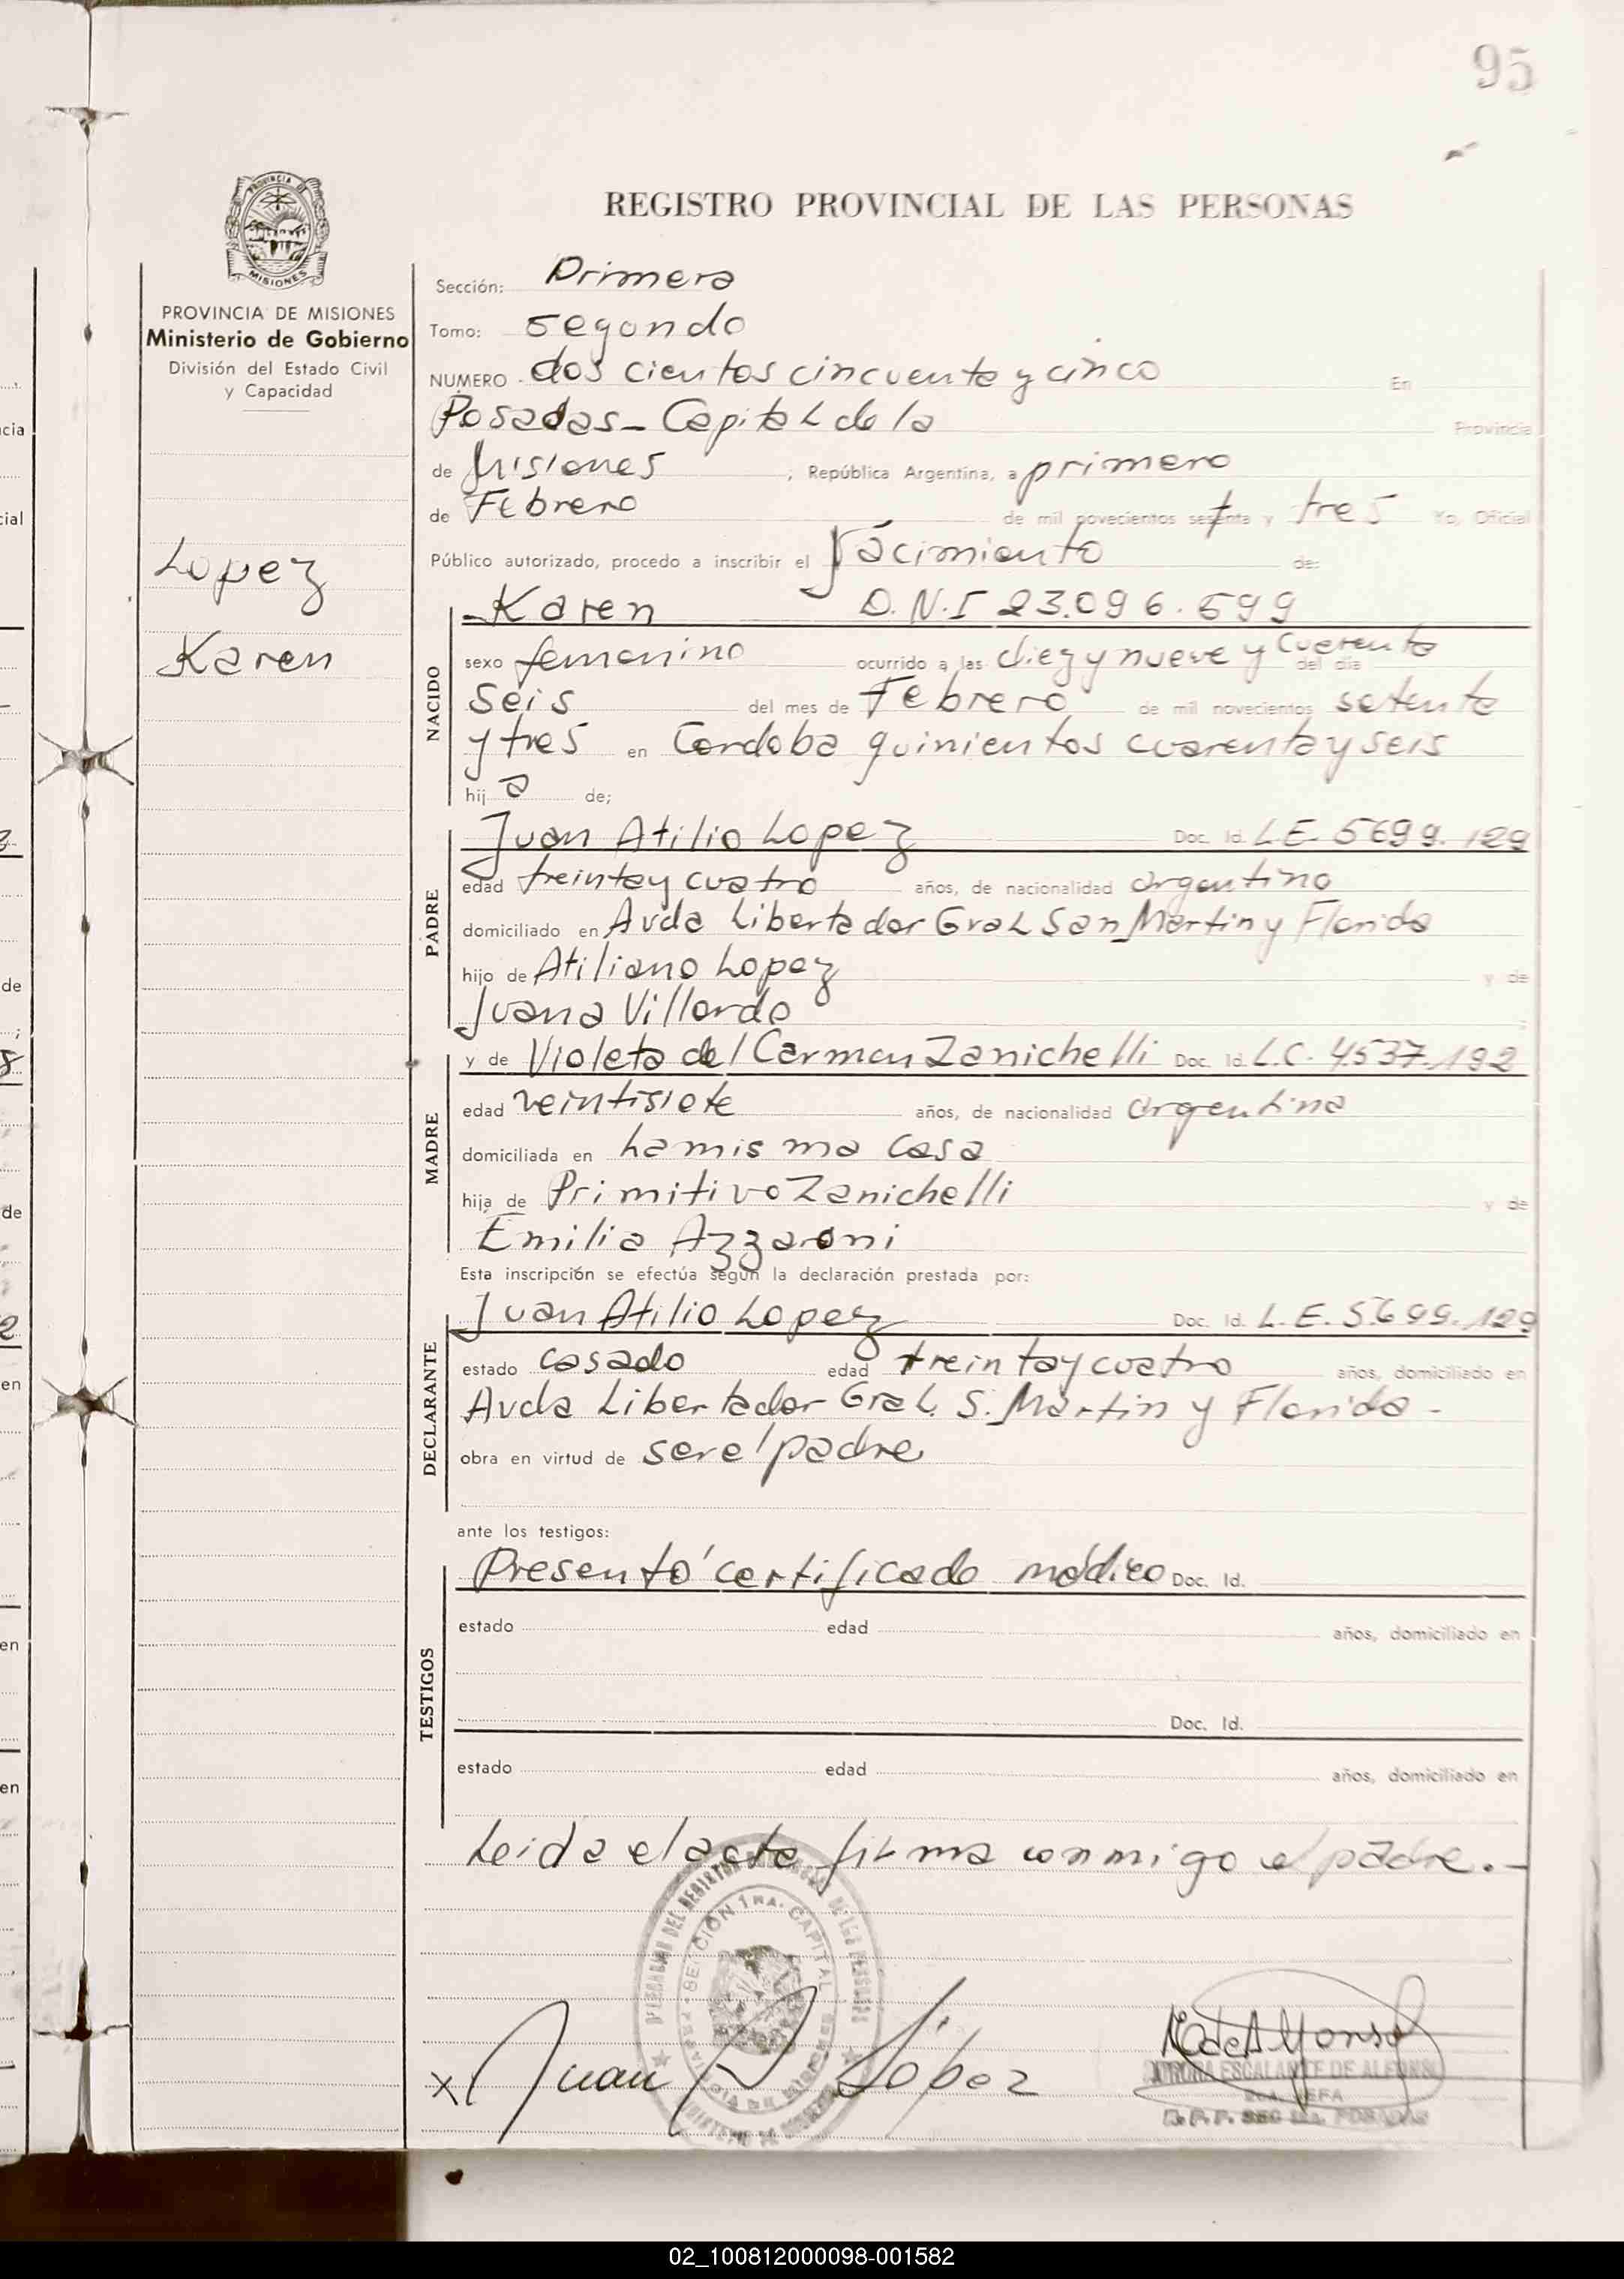 95
REGISTRO PROVINCIAL DE LAS PERSONAS
PROVINCIA DE
MISIONES
PROVINCIA DE MISIONES
Ministerio de Gobierno
División del Estado Civil
y Capacidad
Lopez
Karen
Sección: Primera
Tomo: segundo
NUMERO dos cientos cincuenta y cinco En
Posadas - Capital de la Provincia
de Misiones, República Argentina, a primero
de Febrero de mil novecientos setenta y tres Yo, Oficial
Público autorizado, procedo a inscribir el Nacimiento de:
NACIDO
Karen D.N.I 23.096.699
sexo femenino ocurrido a las diez y nueve y cuarenta del día
seis del mes de Febrero de mil novecientos setenta
y tres en Cordoba quinientos cuarenta y seis
hij a de;
PADRE
Juan Atilio Lopez Doc. Id. L.E. 5699.129
edad treinta y cuatro años, de nacionalidad argentino
domiciliado en Avda Libertador Gral San Martin y Florida
hijo de Atiliano Lopez y de
Juana Villordo
MADRE
y de Violeta del Carmen Zanichelli Doc. Id. L.C. 4.537.192
edad veintisiete años, de nacionalidad argentina
domiciliada en La misma casa
hija de Primitivo Zanichelli y de
Emilia Azzaroni
Esta inscripción se efectúa según la declaración prestada por:
DECLARANTE
Juan Atilio Lopez Doc. Id. L.E. 5.699.129
estado casado edad treinta y cuatro años, domiciliado en
Avda Libertador Gral. S. Martin y Florida -
obra en virtud de ser el padre
ante los testigos:
TESTIGOS
Presentó certificado médico Doc. Id.
estado edad años, domiciliado en
Doc. Id.
estado edad años, domiciliado en
Leida el acta firma conmigo el padre.-
SECCION 1RA. CAPITAL
x Juan A López
ESCALANTE DE ALFONSO
JEFA
R.P.P. SEC 1ra. POSADAS
02_100812000098-001582